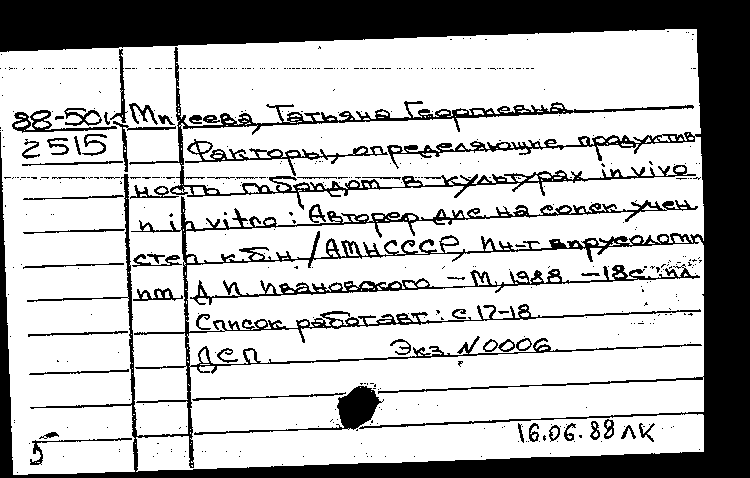 88-50К Михеева, Татьяна Георгиевна.
2515 Факторы, определяющие продуктив-
ность гибридом в культурах in vivo
и in vitro : Автореф. дис. на соиск. учен.
степ. к.б.н. / АМНСССР, Ин-т вирусологии
им. Д.И. Ивановского. – М, 1988. – 18с. : ил.
Список работ авт. : с. 17-18.
ДСП. Экз. N 0006.
16.06.88 ЛК